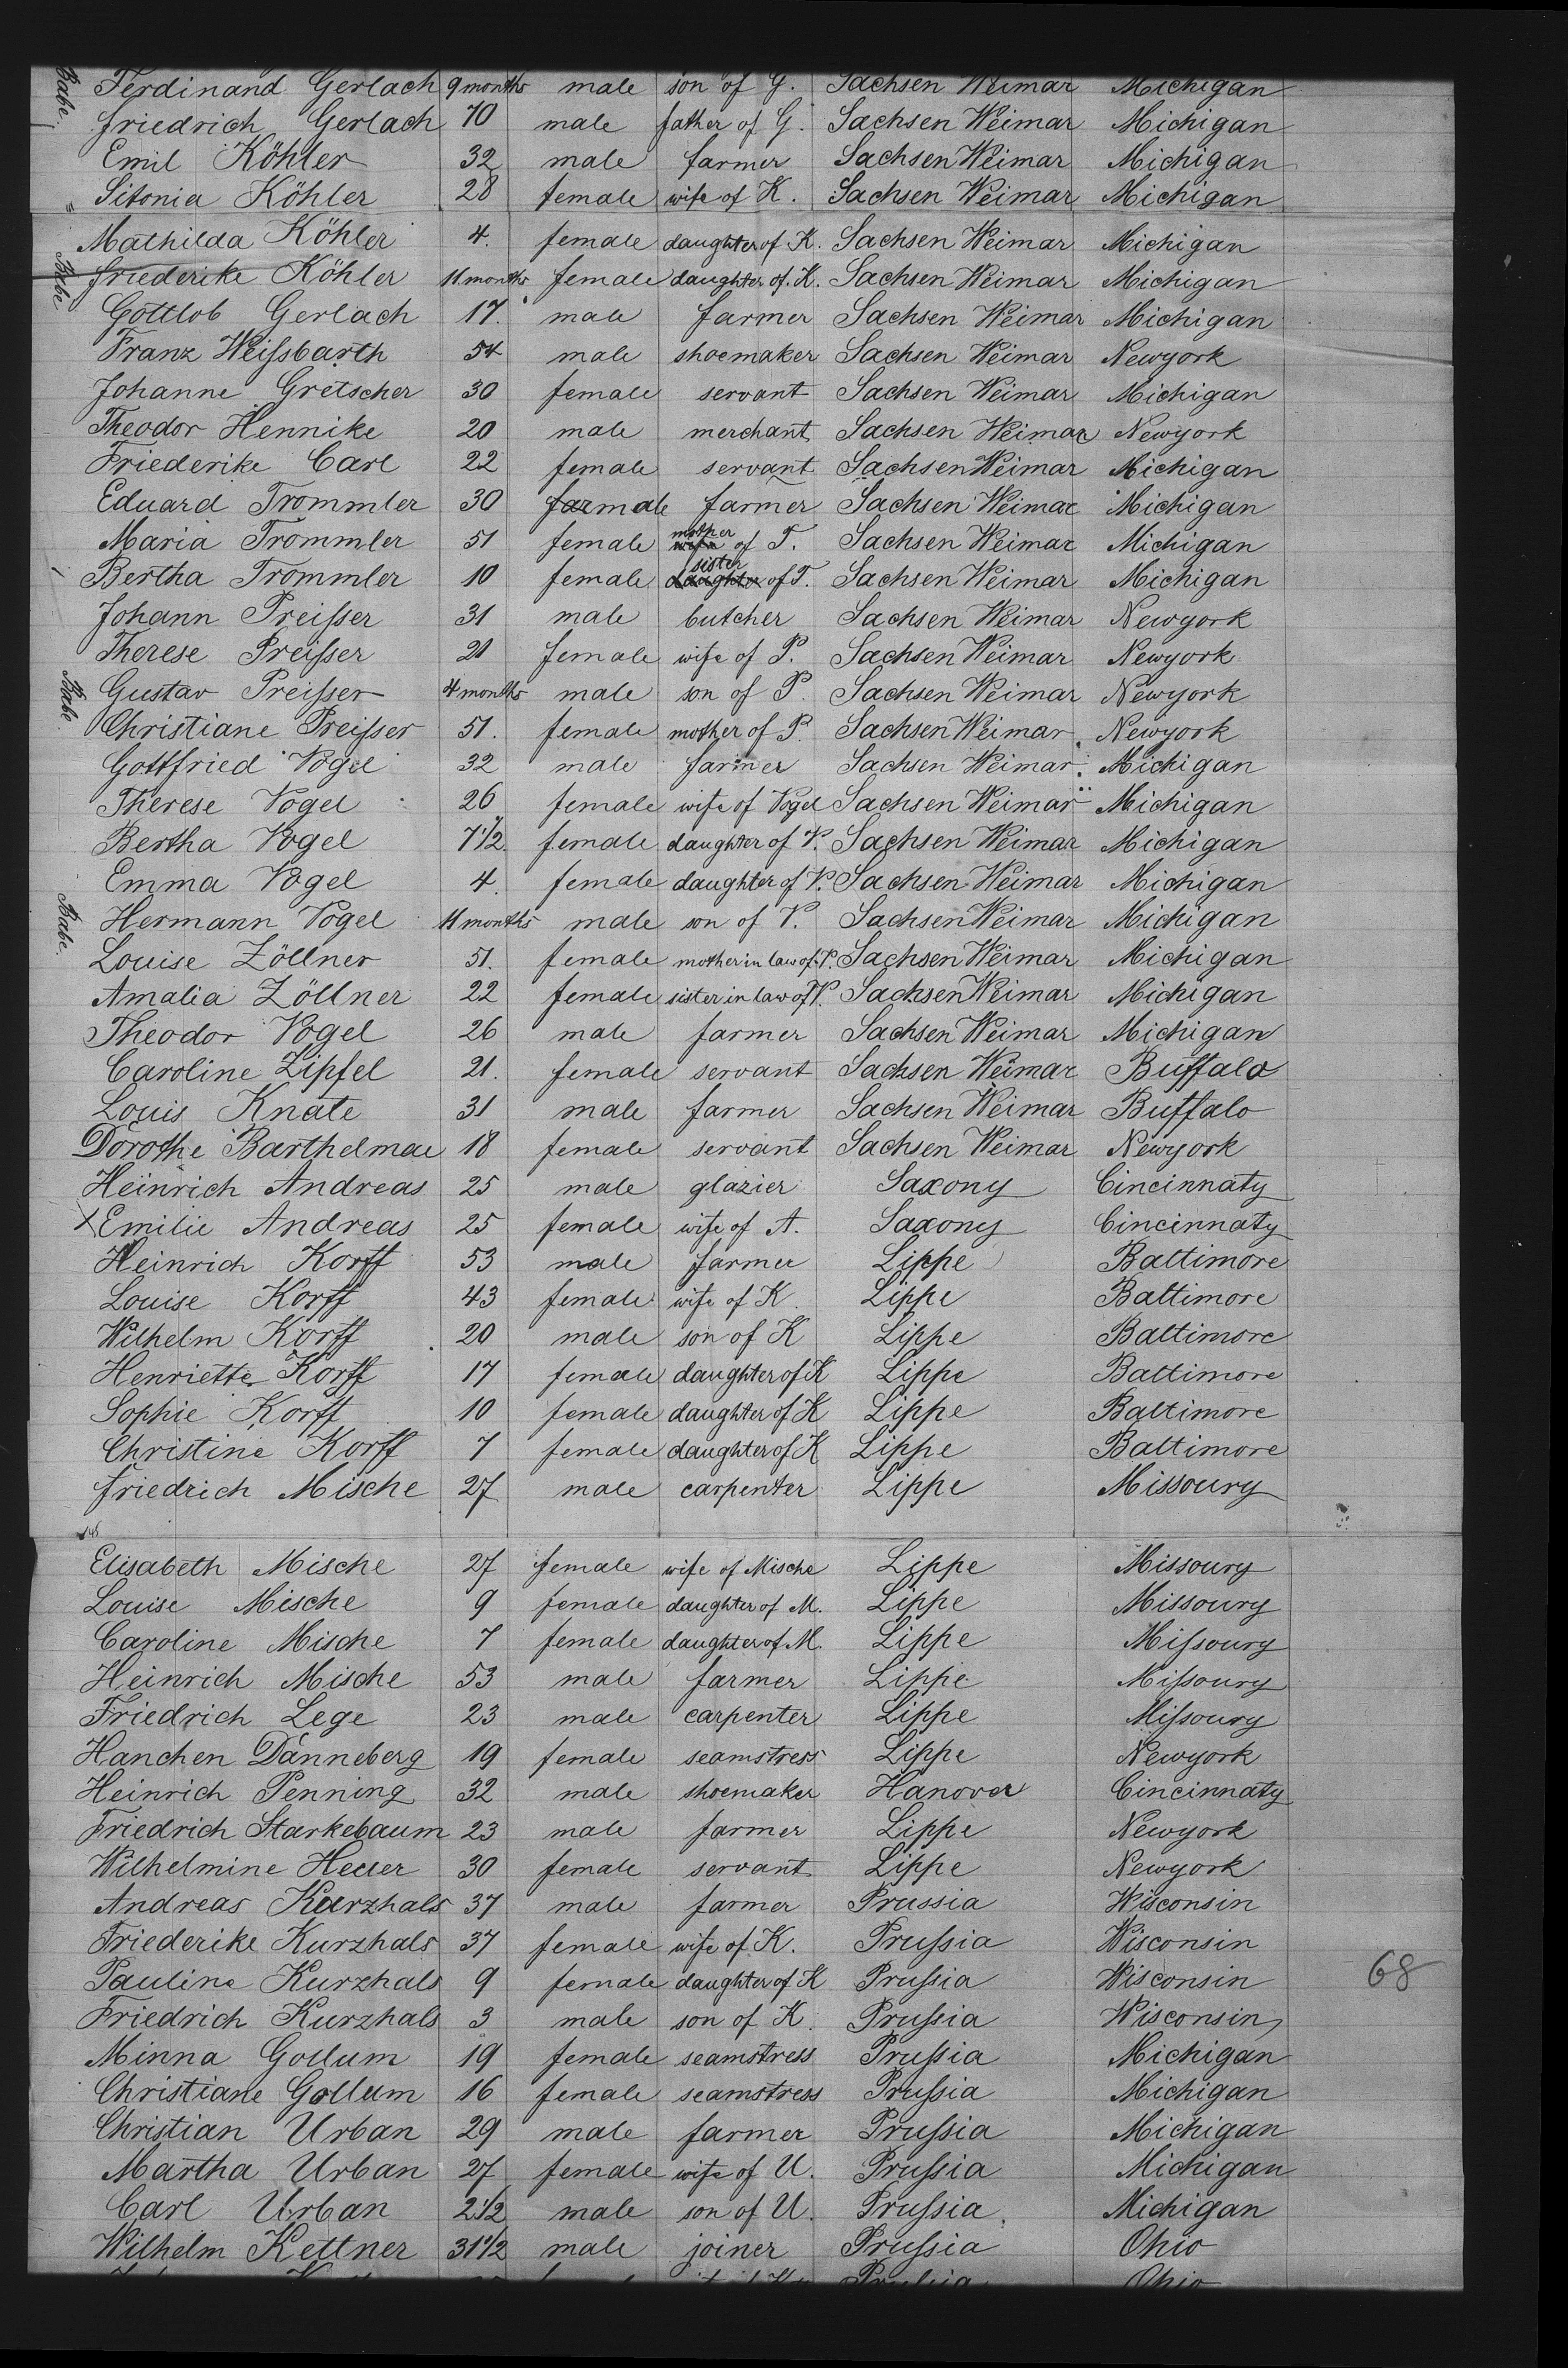 Babe. Ferdinand Gerlach 9 months male son of G. Sachsen Weimar Michigan
Friedrich Gerlach 70 male father of G. Sachsen Weimar Michigan
Emil Köhler 32 male farmer Sachsen Weimar Michigan
Sitonia Köhler 28 female wife of K. Sachsen Weimar Michigan
Mathilda Köhler 4. female daughter of K. Sachsen Weimar Michigan
Babe. Friederike Köhler 11 months female daughter of K. Sachsen Weimar Michigan
Gottlob Gerlach 17. male farmer Sachsen Weimar Michigan
Franz Weißbarth 54 male shoemaker Sachsen Weimar Newyork
Johanne Gretscher 30 female servant Sachsen Weimar Michigan
Theodor Hennike 20 male merchant Sachsen Weimar Newyork
Friederike Carl 22 female servant Sachsen Weimar Michigan
Eduard Trommler 30 far male farmer Sachsen Weimar Michigan
Maria Trommler 51 female wife mother of T. Sachsen Weimar Michigan
Bertha Trommler 10 female daughter sister of T. Sachsen Weimar Michigan
Johann Preißer 31 male butcher Sachsen Weimar Newyork
Therese Preißer 21 female wife of P. Sachsen Weimar Newyork
Babe. Gustav Preißer 4 months male son of P. Sachsen Weimar Newyork
Christiane Preißer 51. female mother of P. Sachsen Weimar Newyork
Gottfried Vogel 32 male farmer Sachsen Weimar Michigan
Therese Vogel 26 female wife of Vogel Sachsen Weimar Michigan
Bertha Vogel 7 1/2. female daughter of V. Sachsen Weimar Michigan
Emma Vogel 4. female daughter of V. Sachsen Weimar Michigan
Babe. Hermann Vogel 11 months male son of V. Sachsen Weimar Michigan
Louise Zöllner 51. female mother in law of V. Sachsen Weimar Michigan
Amalia Zöllner 22 female sister in law of V. Sachsen Weimar Michigan
Theodor Vogel 26 male farmer Sachsen Weimar Michigan
Caroline Zipfel 21. female servant Sachsen Weimar Buffalo
Louis Knate 31 male farmer Sachsen Weimar Buffalo
Dorothe Barthelmae 18 female servant Sachsen Weimar Newyork
Heinrich Andreas 25 male glazier Saxony Cincinnaty
X Emilie Andreas 25 female wife of A. Saxony Cincinnaty
Heinrich Korff 53 male farmer Lippe Baltimore
Louise Korff 43 female wife of K. Lippe Baltimore
Wilhelm Korff 20 male son of K Lippe Baltimore
Henriette Korff 17 female daughter of K Lippe Baltimore
Sophie Korff 10 female daughter of K Lippe Baltimore
Christine Korff 7 female daughter of K Lippe Baltimore
Friedrich Mische 27 male carpenter Lippe Missoury
Elisabeth Mische 27 female wife of Mische Lippe Missoury
Louise Mische 9 female daughter of M. Lippe Missoury
Caroline Mische 7 female daughter of M. Lippe Mißoury
Heinrich Mische 53 male farmer Lippe Mißoury
Friedrich Lege 23 male carpenter Lippe Mißoury
Hanchen Danneberg 19 female seamstress Lippe Newyork
Heinrich Penning 32 male shoemaker Hanover Cincinnaty
Friedrich Starkebaum 23 male farmer Lippe Newyork
Wilhelmine 30 female servant Lippe Newyork
Andreas Kurzhals 37 male farmer Prussia Wisconsin
Friederike Kurzhals 37 female wife of K. Prußia Wisconsin
Pauline Kurzhals 9 female daughter of K Prußia Wisconsin 68
Friedrich Kurzhals 3 male son of K. Prußia Wisconsin
Minna Gollum 19 female seamstress Prußia Michigan
Christiane Gollum 16 female seamstress Prußia Michigan
Christian Urban 29 male farmer Prußia Michigan
Martha Urban 27 female wife of U. Prußia Michigan
Carl Urban 2 1/2 male son of U. Prußia Michigan
Wilhelm Kettner 31 1/2 male joiner Prußia Ohio
Prußia Ohio